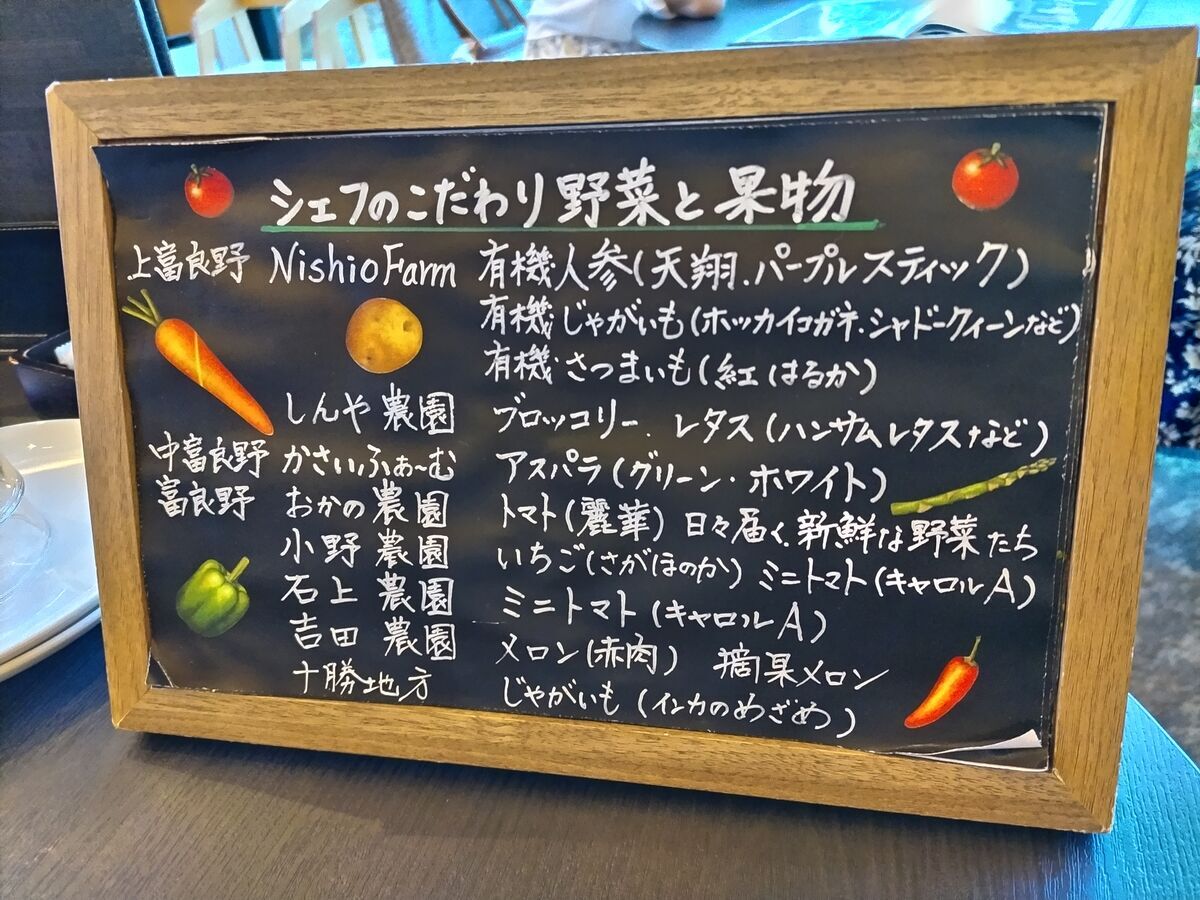 シェフのこだわり野菜と果物
上富良野 Nishio Farm 有機人参(天翔、パープルスティック)
有機じゃがいも(ホッカイコガネ、シャドークィーンなど)
有機さつまいも(紅はるか)
しんや農園 ブロッコリー、レタス(ハンサムレタスなど)
中富良野 かさいふぁ〜む アスパラ(グリーン・ホワイト)
富良野 おかの農園 トマト(麗華) 日々届く、新鮮な野菜たち
小野農園 いちご(さがほのか) ミニトマト(キャロルA)
石上農園 ミニトマト(キャロルA)
吉田農園 メロン(赤肉) 摘果メロン
十勝地方 じゃがいも(インカのめざめ)